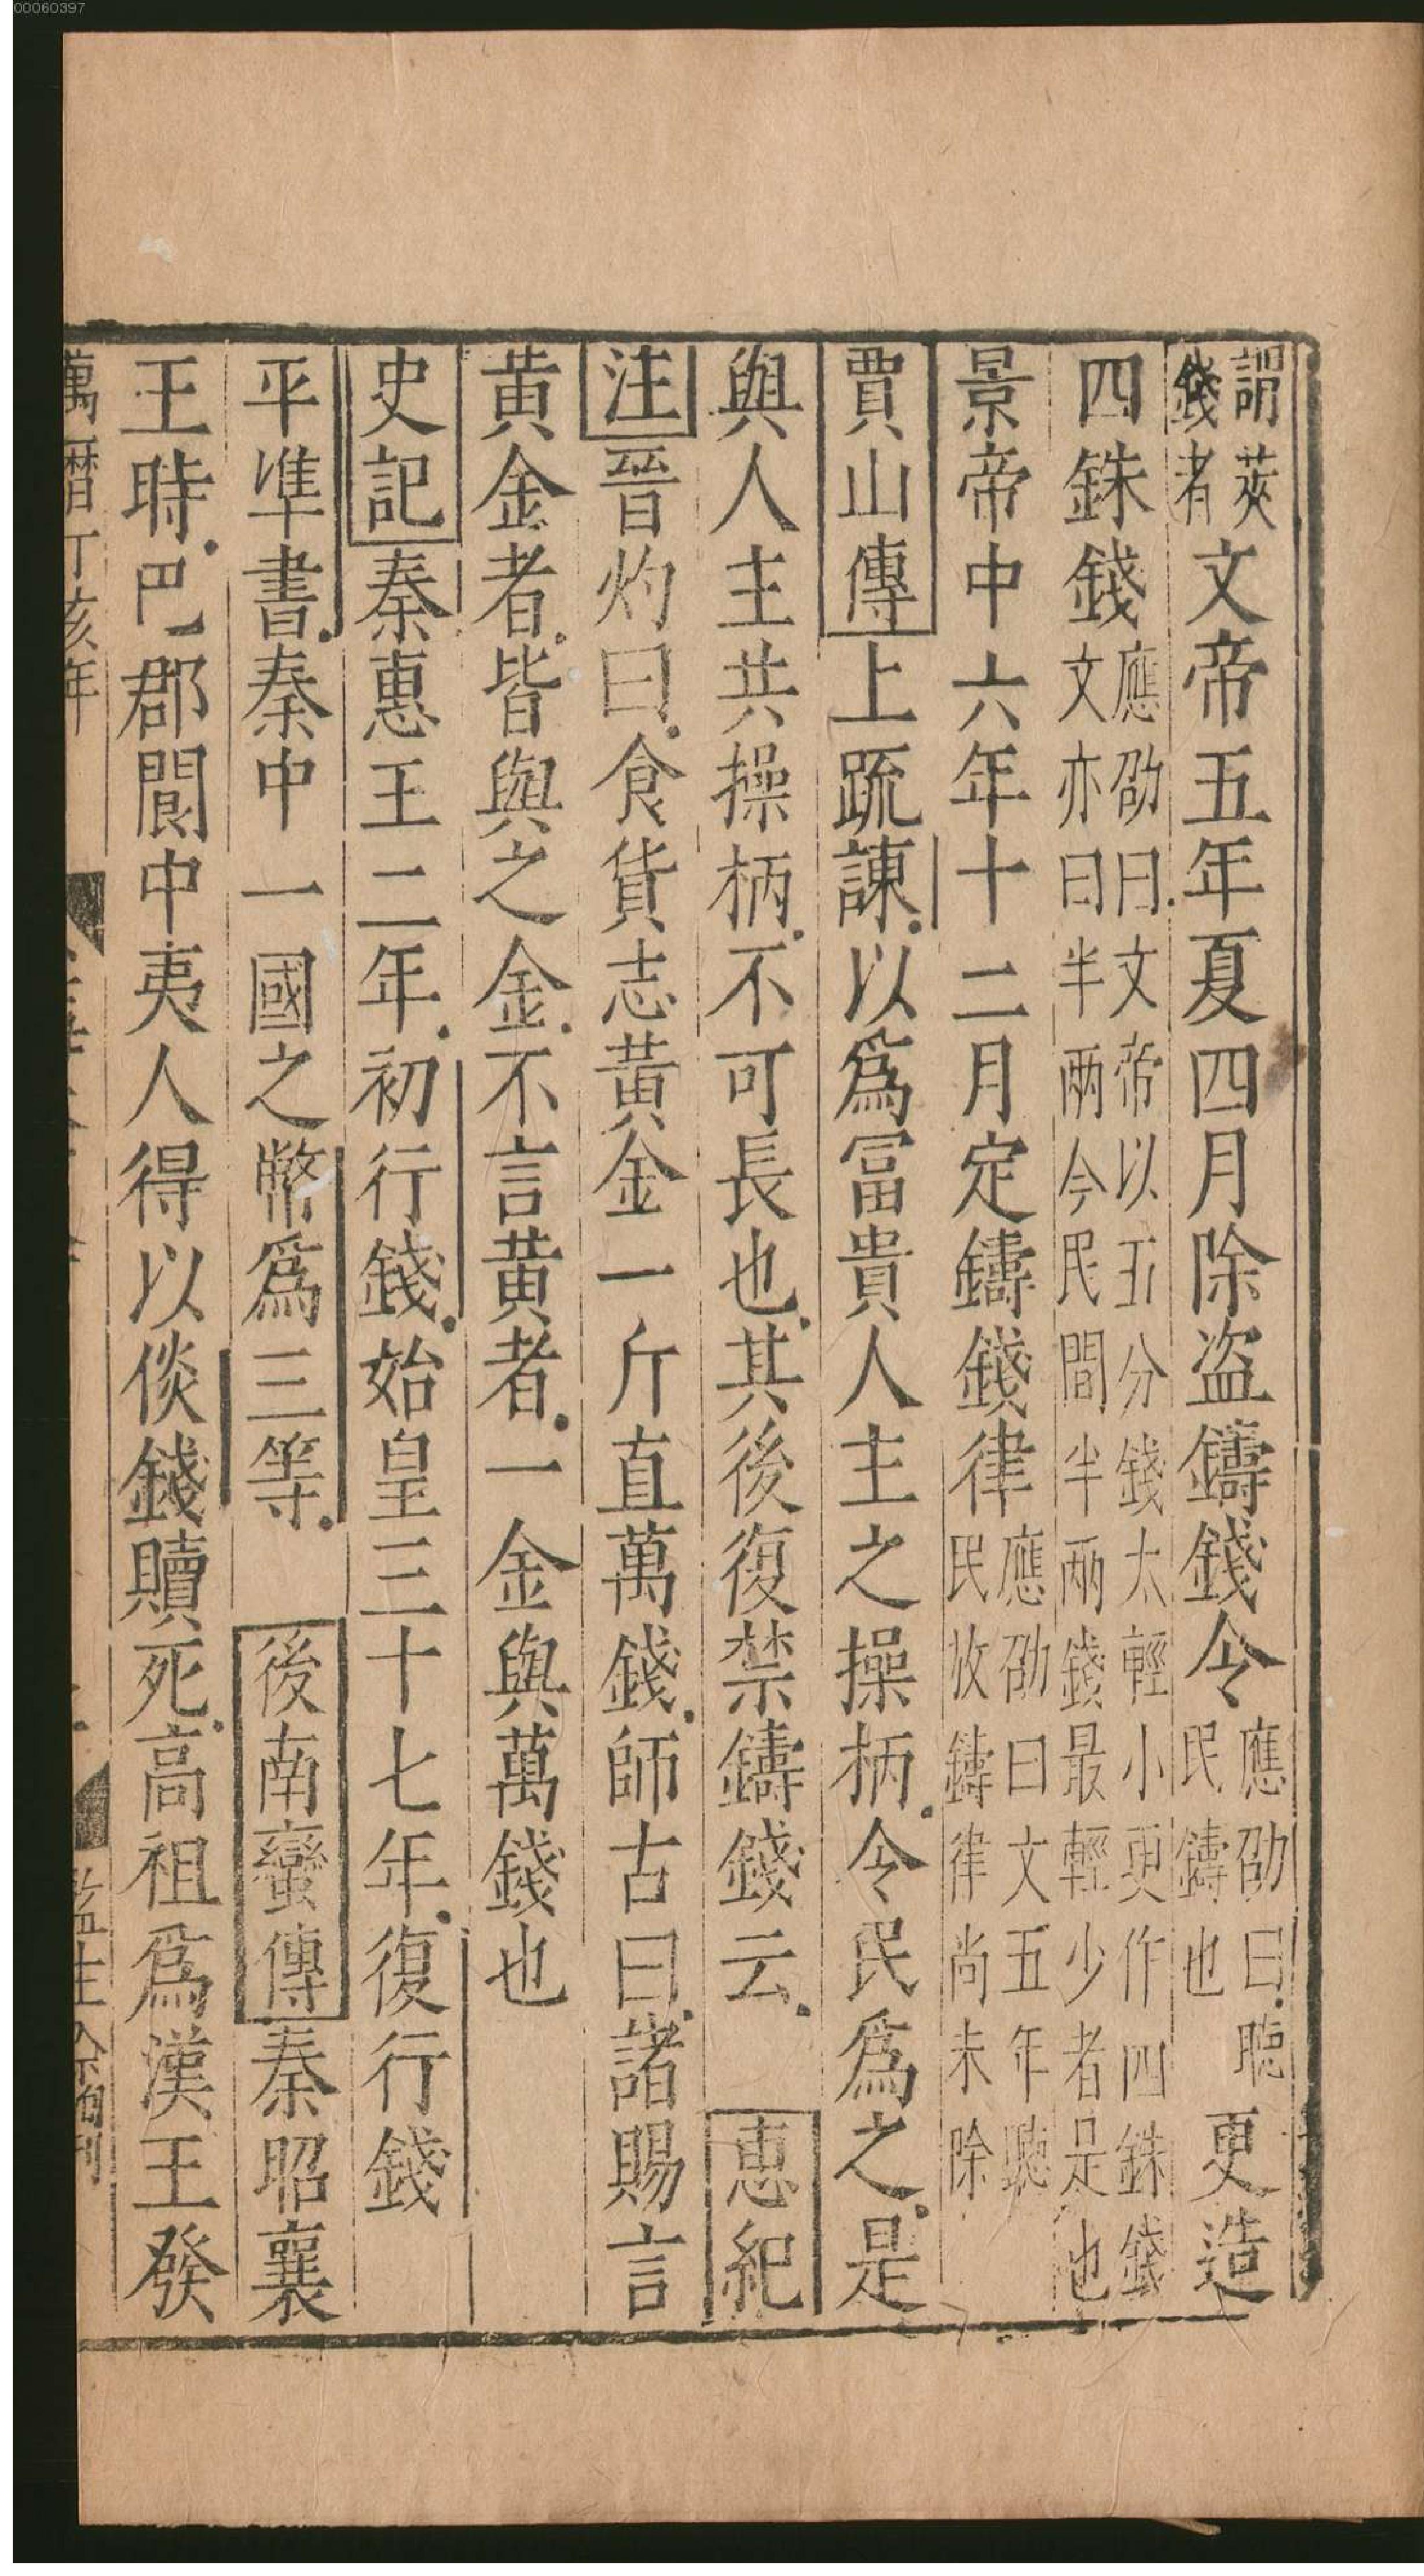 00060397
謂莢錢者文帝五年夏四月除盗鑄錢令應劭曰聽民鑄也更造
四銖錢應劭曰文帝以五分錢太輕小更作四銖錢文亦曰半兩今民間半兩錢最輕少者是也
景帝中六年十二月定鑄錢律應劭曰文五年聽民放鑄律尚未除
賈山傳上疏諫以爲富貴人主之操柄令民爲之是
與人主共操柄不可長也其後復禁鑄錢云 惠紀
注晉灼曰食貨志黃金一斤直萬錢師古曰諸賜言
黄金者皆與之金不言黄者一金與萬錢也
史記秦惠王二年初行錢始皇三十七年復行錢
平準書秦中一國之幣爲三等 後南蠻傳秦昭襄
王時巴郡閬中夷人得以倓錢贖死高祖爲漢王發
萬曆丁亥年